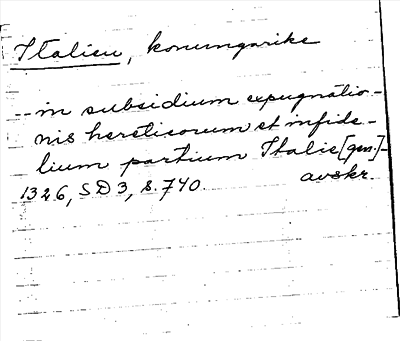 Italien, konungarike
-- in subsidium expugnatio-
nis hereticorum et infide-
lium partium Italie [gen.] -
1326, SD 3, s. 740. avskr.